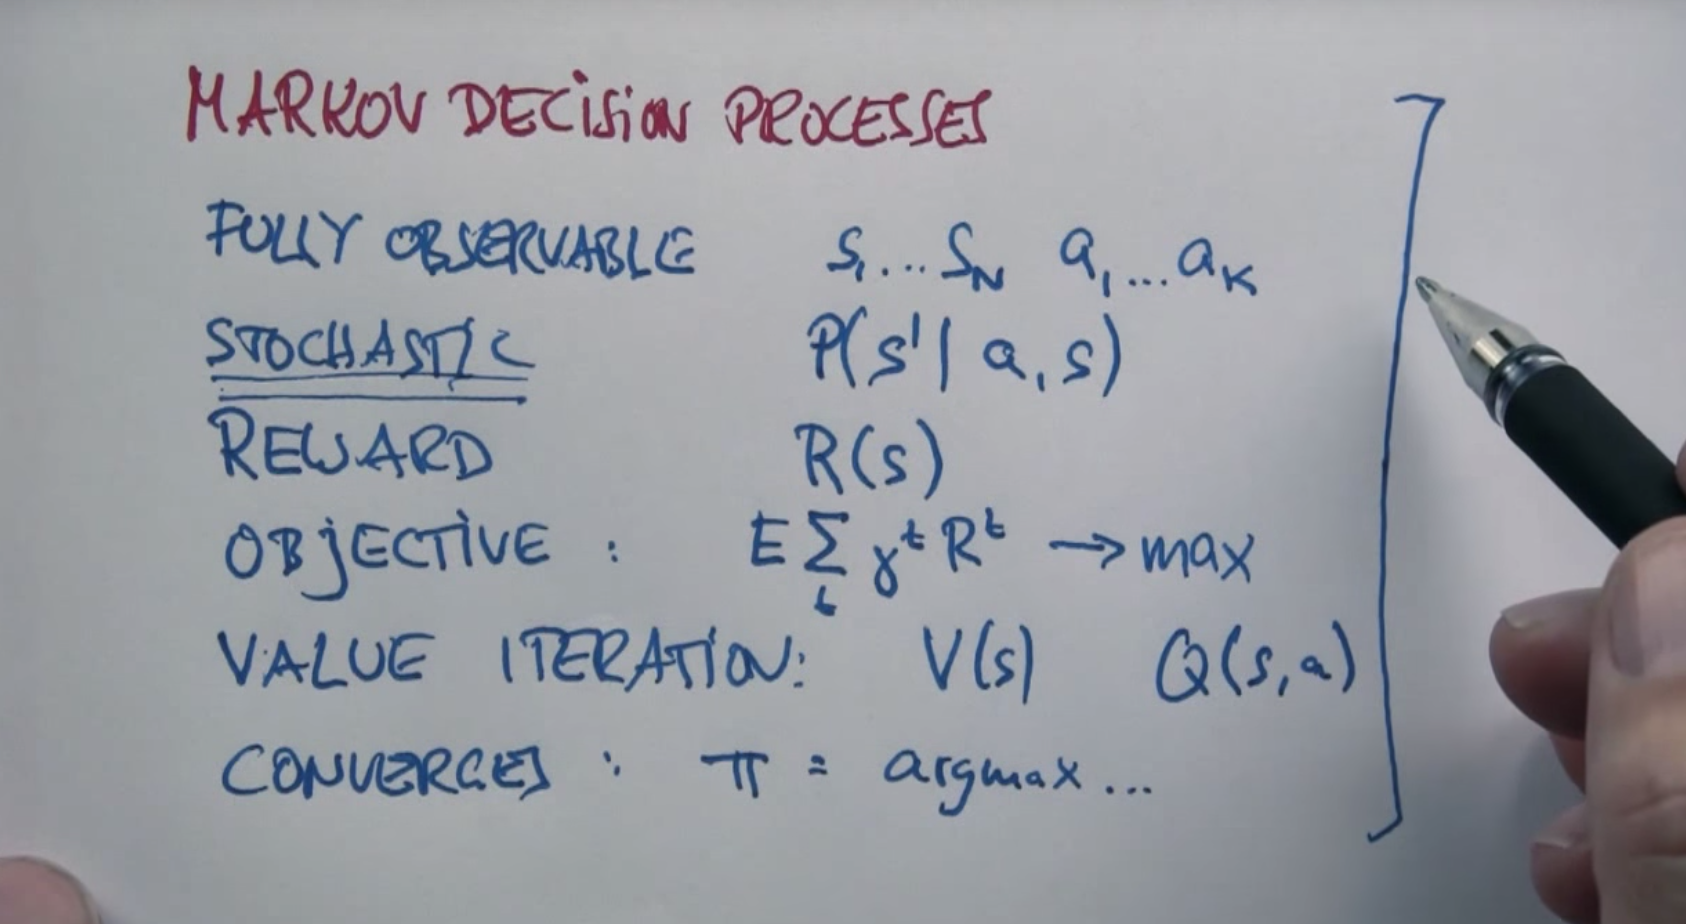 MARKOV DECISION PROCESSES
FULLY OBSERVABLE s₁...sN a₁...aK
STOCHASTIC P(s'| a, s)
REWARD R(s)
OBJECTIVE : E Σₜ γᵗ Rᵗ → max
VALUE ITERATION: V(s) Q(s,a)
CONVERGES : π = argmax...